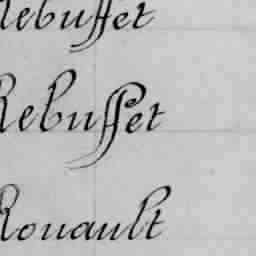 Rebuffet
Rebuffet
Rouault